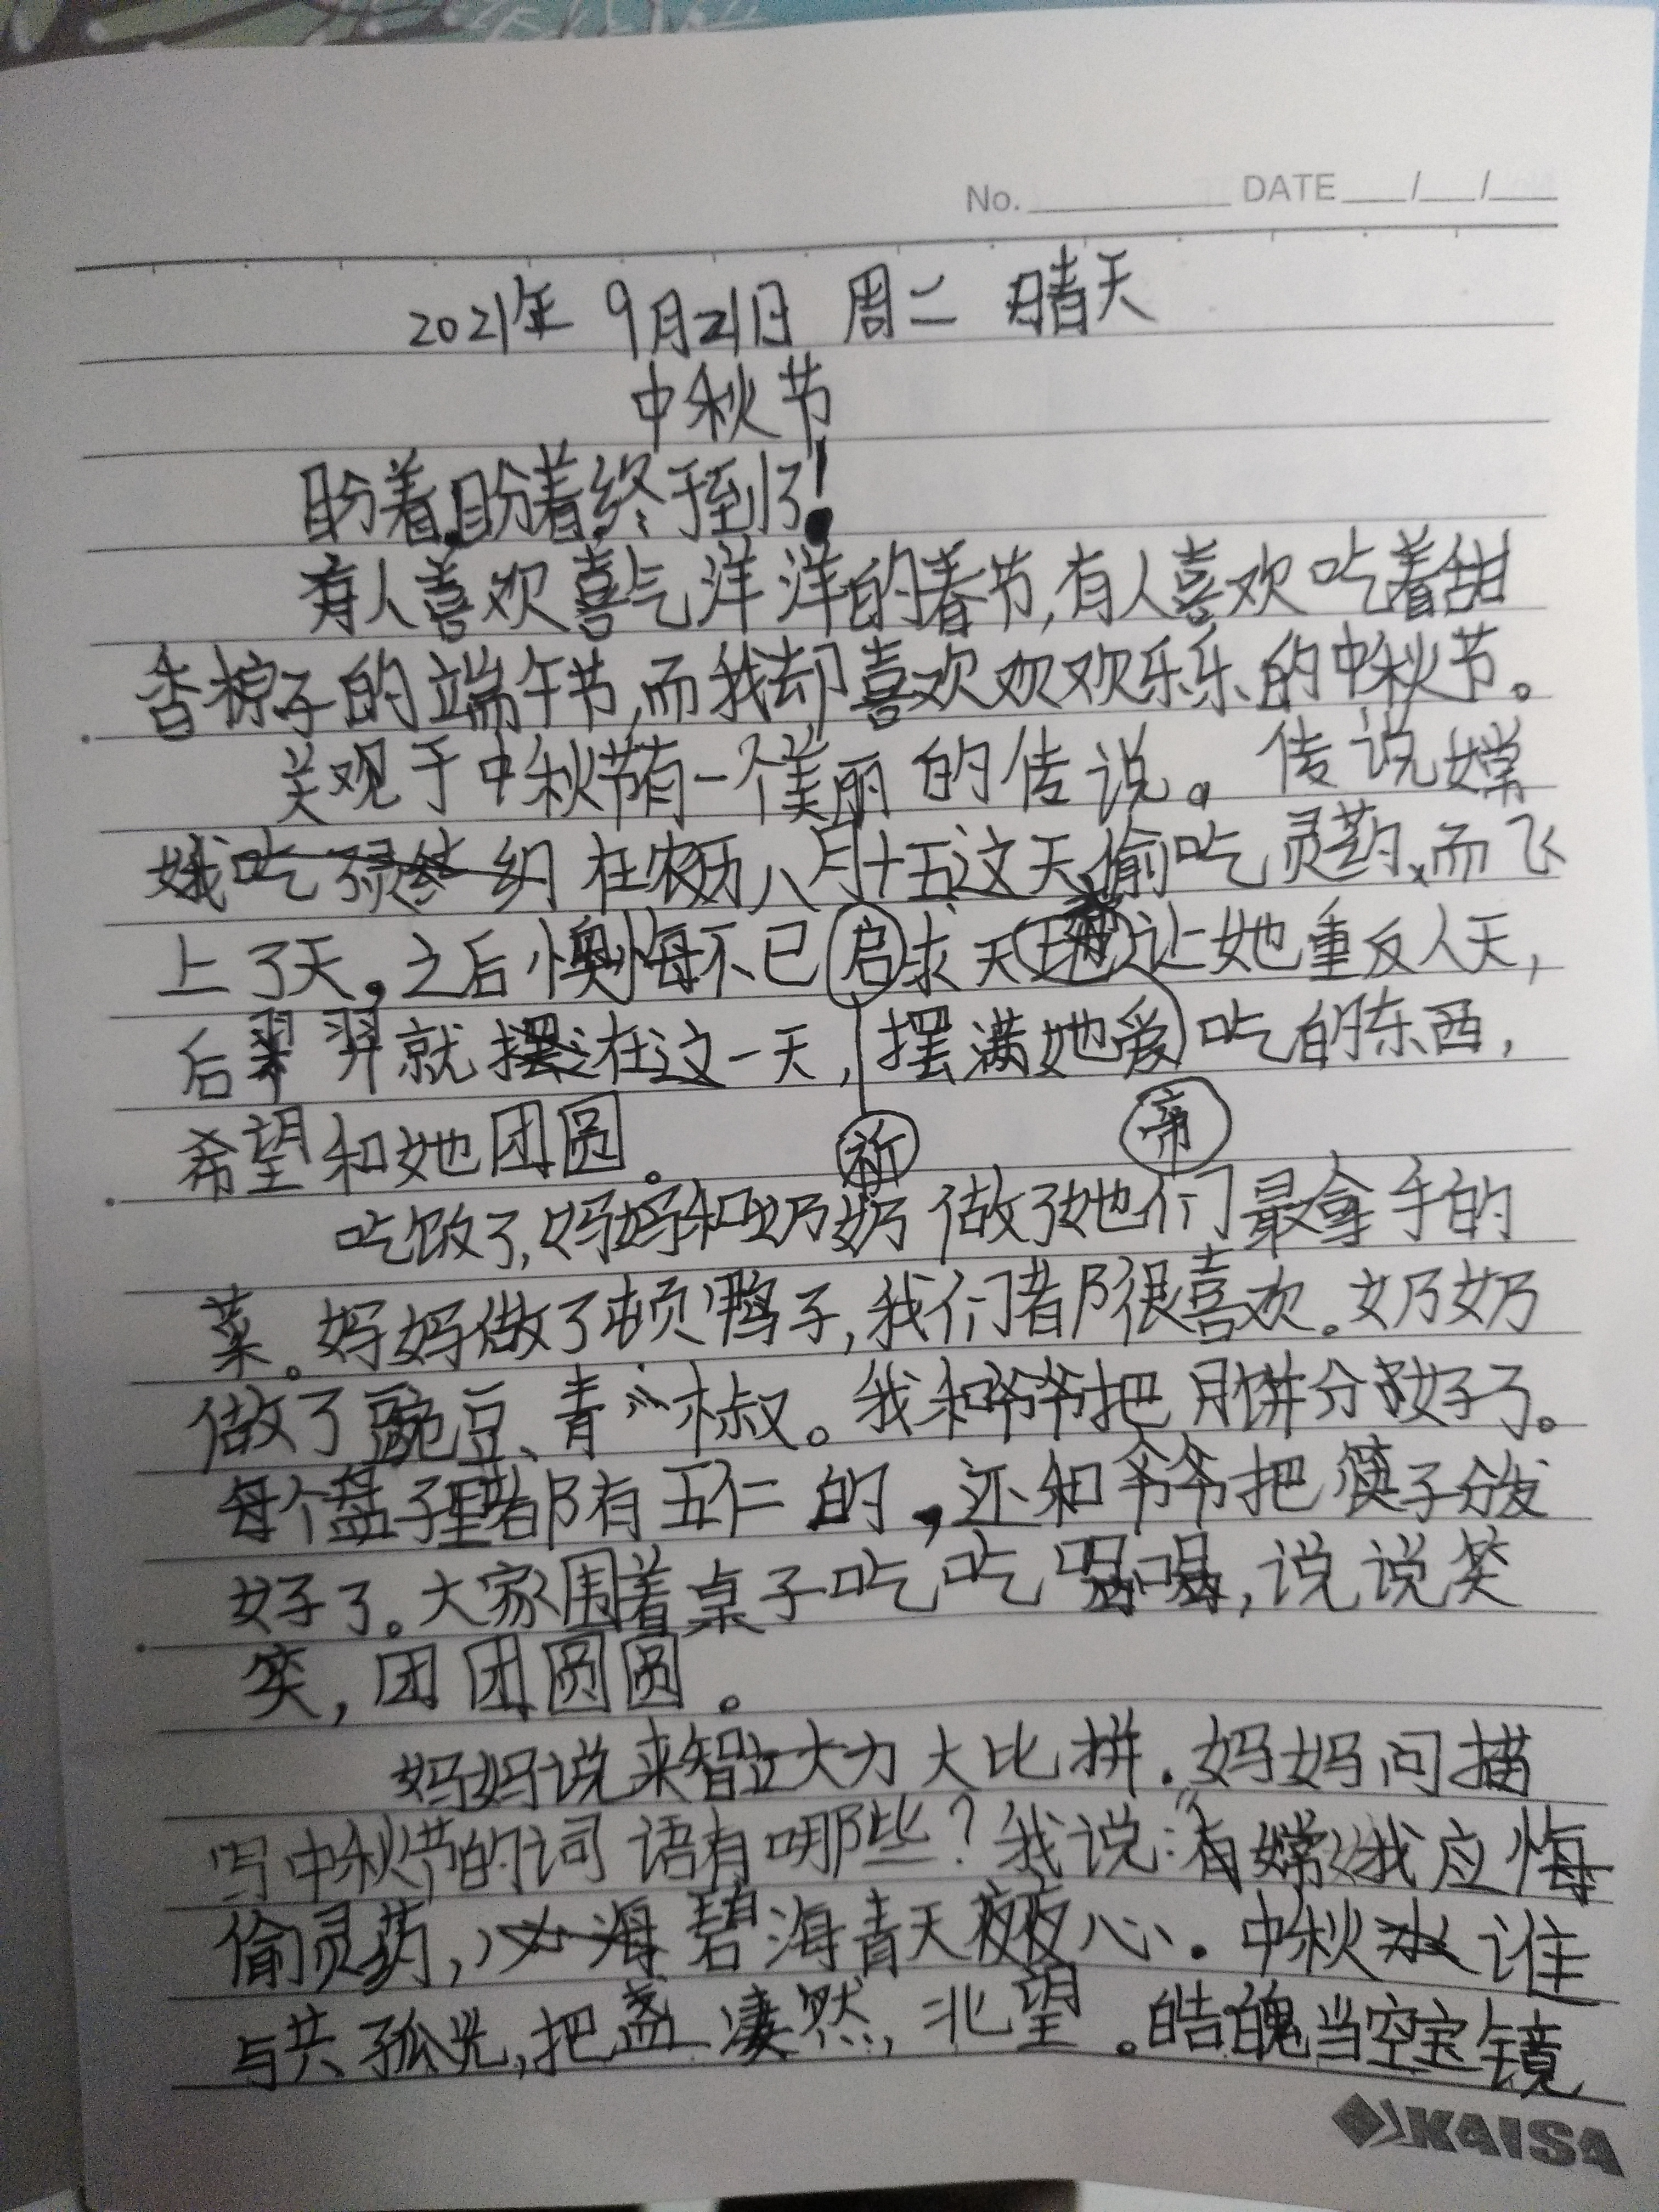 No. DATE / /
2021年 9月21日 周二 晴天
中秋节
盼着,盼着终于到了!
有人喜欢喜气洋洋的春节,有人喜欢吃着甜
香粽子的端午节,而我却喜欢欢欢乐乐的中秋节。
关观于中秋节有一个美丽的传说。传说嫦
娥 在农历八月十五这天偷吃灵药、而飞
上了天。之后懊悔不已启求天地让她重反人天,
后羿就 在这一天,摆满她爱吃的东西,
希望和她团圆。 祈 帝
吃饭了,妈妈和奶奶做了她们最拿手的
菜。妈妈做了顿鸭子,我们都很喜欢。奶奶
做了豌豆、青椒。我和爷爷把月饼分好了。
每个盘子里都有五仁的,还和爷爷把筷子分发
好了。大家围着桌子吃吃喝喝,说说笑
笑,团团圆圆。
妈妈说来智力大比拼.妈妈问描
写中秋节的词语有哪些?我说:“有嫦娥应悔
偷灵药,碧海青天夜夜心.中秋谁
与共孤光,把盏凄然,北望。皓魄当空宝镜
KAISA